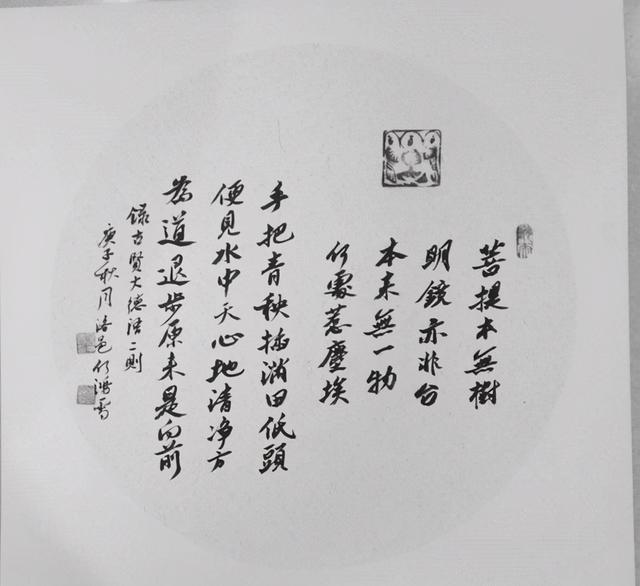 菩提本無樹
明鏡亦非台
本来無一物
何處惹塵埃
手把青秧插满田低頭
便見水中天心地清净方
為道退步原来是向前
録古賢大德语二則
庚子秋月洛邑任鴻雪